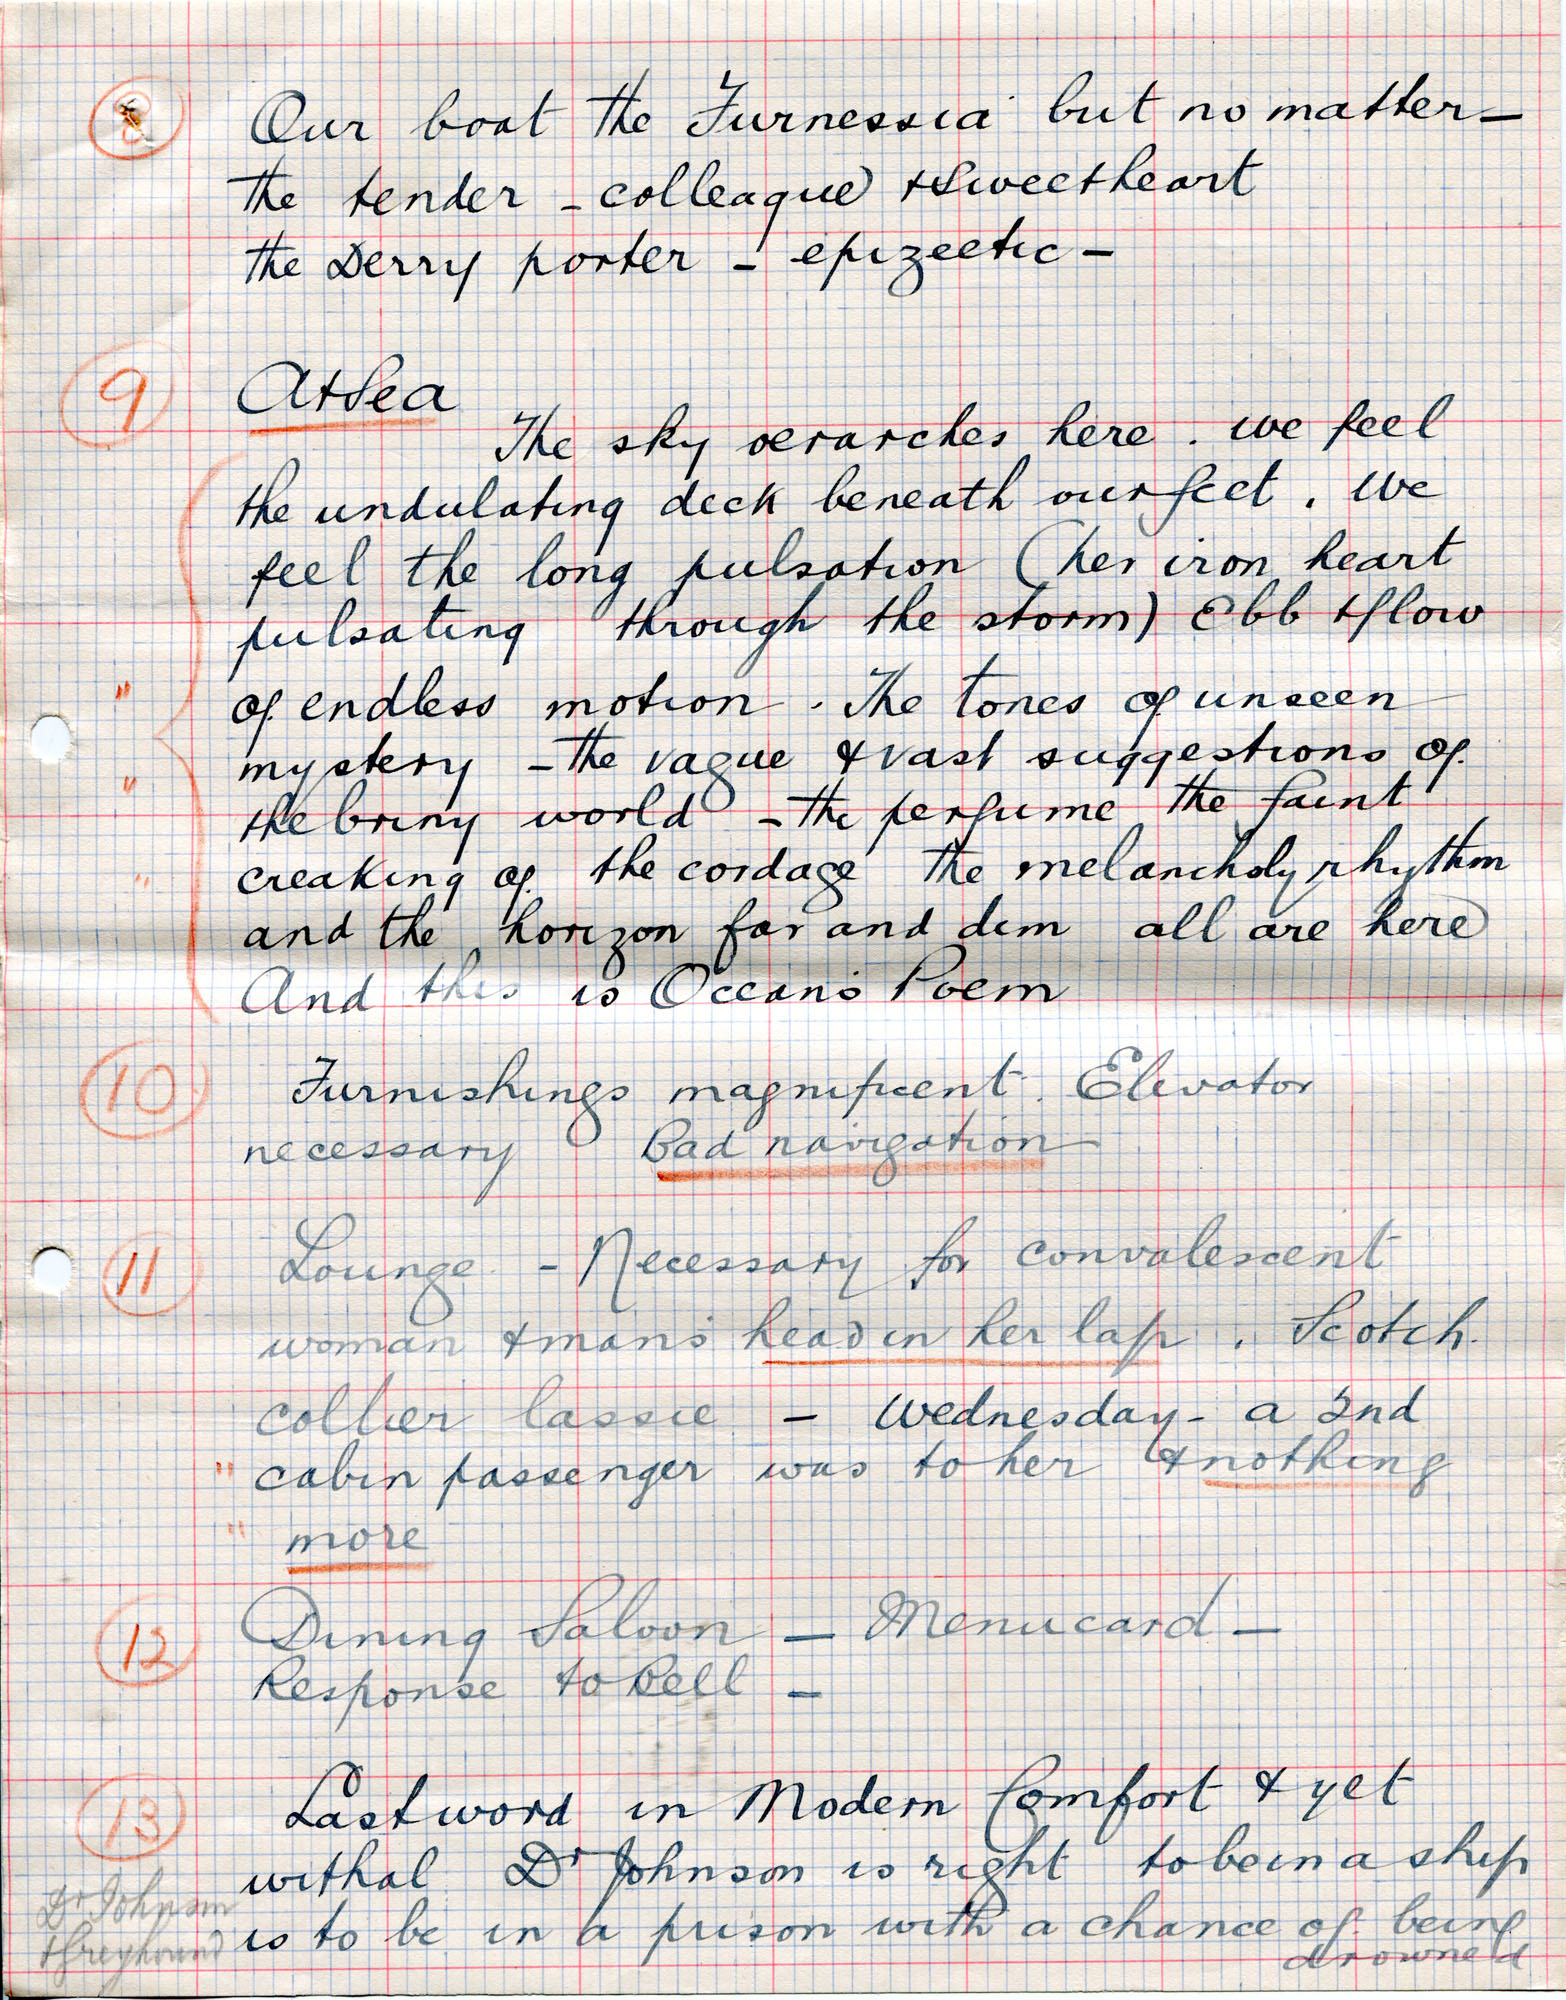 8 Our boat the Furnessia but no matter —
the tender – colleague & Sweetheart
the Derry porter – epizeetic –
9 At Sea
The sky oerarches here. we feel
the undulating deck beneath our feet. We
feel the long pulsation (her iron heart
pulsating through the storm) Ebb & flow
of endless motion. The tones of unseen
" mystery – the vague & vast suggestions of
" the briny world – the perfume the faint
" creaking of the cordage the melancholy rhythm
and the horizon far and dim all are here
And this is Oceans Poem
10 Furnishings magnificent. Elevator
necessary Bad navigation
11 Lounge – Necessary for convalescent
woman & mans head in her lap. Scotch
collier lassie – Wednesday – a 2nd
" cabin passenger was to her & nothing
" more
12 Dining Saloon – Menu card –
Response to Bell –
13 Last word in Modern Comfort & yet
withal Dr Johnson is right to be in a ship
is to be in a prison with a chance of being
drowned
Dr Johnson
& Greyhound